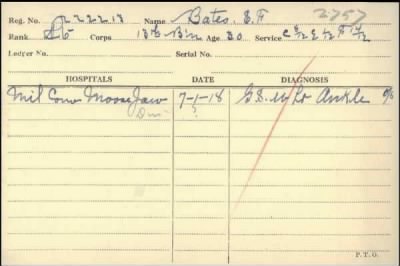 Reg. No. 222218 Name Bates, E.F 2757
Rank Pte Corps 13th Bn Age 30 Service C 8/12 E 2/12 F 14/12
Ledger No. Serial No.
HOSPITALS DATE DIAGNOSIS
Mil Conv Moose Jaw 7-1-18 G.S.W Lt Ankle
Dis ?
P. T. O.